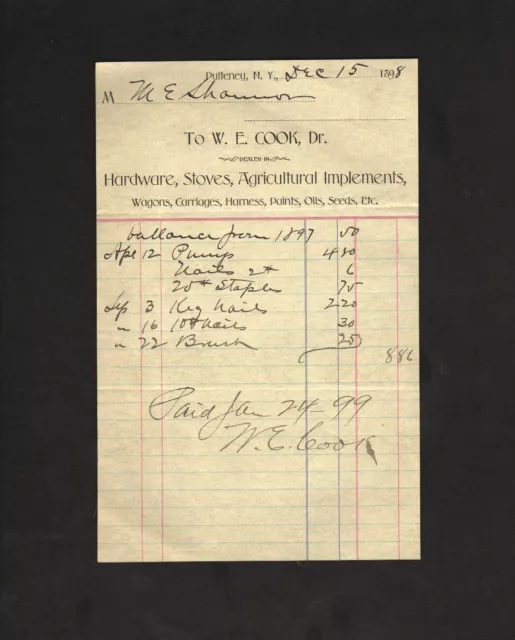 Pulteney, N. Y., Dec 15 1898
M M E Shannon
To W. E. COOK, Dr.
DEALER IN
Hardware, Stoves, Agricultural Implements,
Wagons, Carriages, Harness, Paints, Oils, Seeds, Etc.
ballance from 1897 50
Apl 12 Pump 4 80
Nails 2# 6
20# Staples 75
Sep 3 Keg Nails 2 20
" 16 10# nails 30
" 22 Brush 25
8 86
Paid Jan 24-99
W. E. Cook